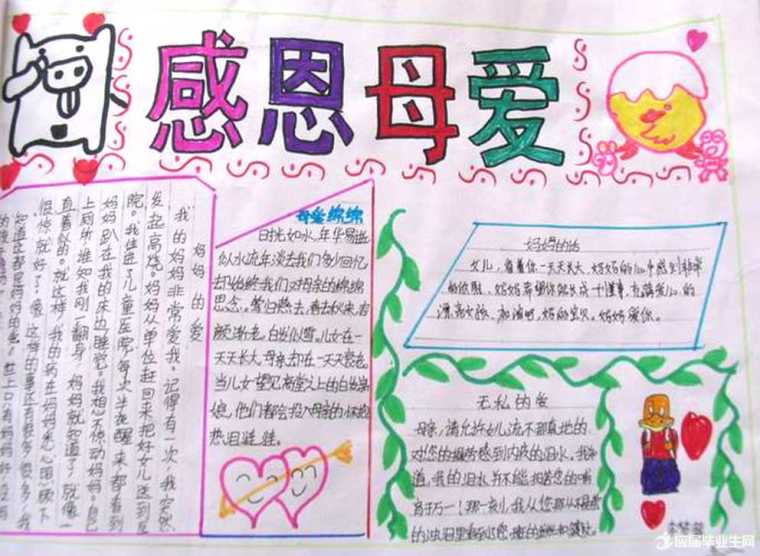 感恩母爱
妈妈的爱
我的妈妈非常爱我。记得有一次，我突然
发起高烧。妈妈从单位赶回来把我送到医
院。我住进了儿童医院，每次半夜醒来都看到
妈妈趴在我的床边睡觉。我想不惊动妈妈自己
上厕所，谁知我刚一翻身，妈妈就知道了，就像一
直看似的。就这样，我的病在妈妈悉心照顾下
很快就好了。像这样的事还有很多很多！我
知道这都是妈妈的
母爱绵绵
时光如水，年华易逝
似水流年淡去我们多少回忆
却始终我们对母亲的绵绵
思念。莺归燕去，春去秋来，容
颜渐老，白发似雪。儿女在一
天天长大，母亲却在一天天衰老。
当儿女望见高堂之上的白发亲
娘，他们都会投入母亲的怀抱
热泪
妈妈的话
女儿，看着你一天天长大，妈妈的心中感到非常
的欣慰。妈妈希望你能成为懂事，充满爱心的
漂亮女孩，加油吧，妈的宝贝，妈妈爱你。
无私的爱
母亲，请允许女儿流下那真心的
对您的感到内疚的泪水，我知
道，我的泪水并不能报答您的
万一！那一刻，我从您那
的泪里
应届毕业生网